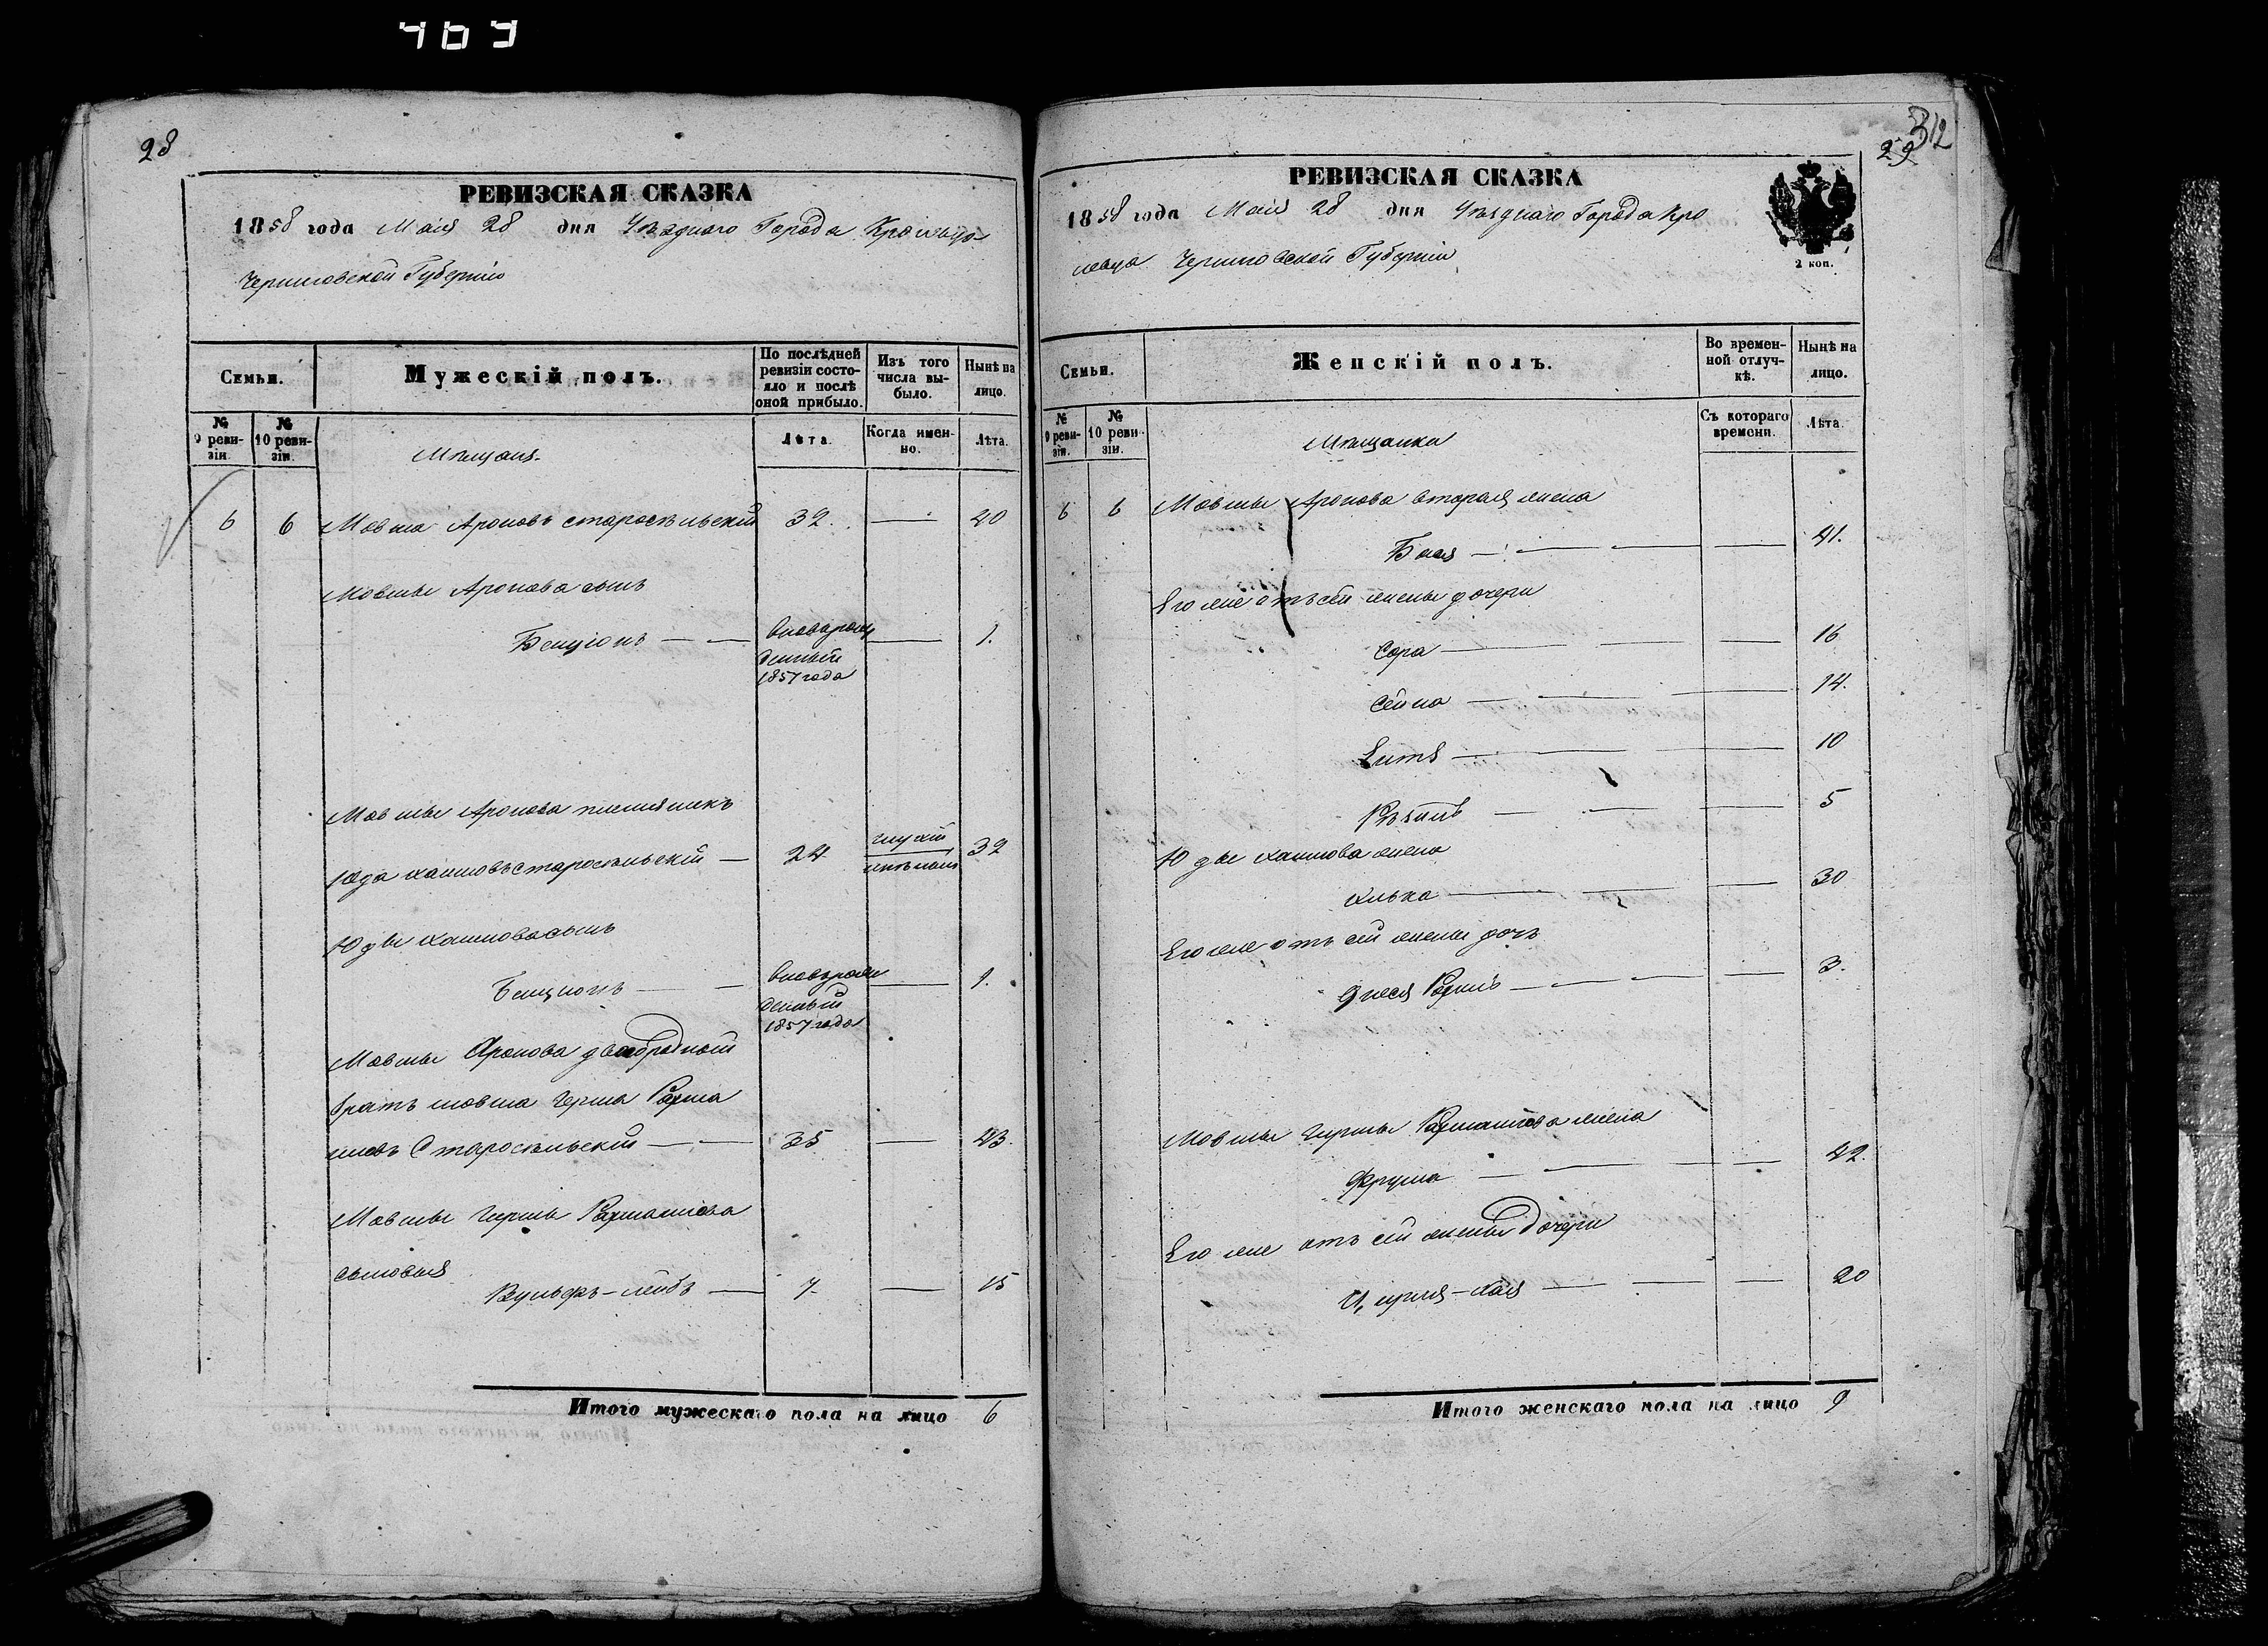 469
28
РЕВИЗСКАЯ СКАЗКА
1858 года Маія 28 дня Уѣзднаго Города Кролевца
Черниговской Губерніи
Семьи.
Мужескій полъ.
По послѣдней ревизіи состояло и послѣ оной прибыло.
Изъ того числа выбыло.
Нынѣ на лицо.
№ 9 ревизіи.
№ 10 ревизіи.
Мѣщане.
Лѣта.
Когда именно.
Лѣта.
6 6 Мовша Ароновъ старосельскій 32. — 40
Мовшы Аронова сынъ
Бенціонъ — — вновьрожденный 1857 года — 1.
Мовшы Аронова племяникъ
Юда хаимовъ старосельскій — 24 глухій 32
Юды хаимова сынъ
Бенціонъ — — вновьрожденный 1857 года — 1.
Мовшы Аронова двоюродный
братъ мовша герша Рахма
иновъ Старосельскій — — 35 — 43.
Мовшы гершы Рахмаилова
сыновья
Вульфъ-лейбъ — 7. — 15
Итого мужескаго пола на лицо 6
29
312
РЕВИЗСКАЯ СКАЗКА
1858 года Маія 28 дня Уѣзднаго Города Кро
левца Черниговской Губерніи
2 коп.
Семьи.
Женскій полъ.
Во временной отлучкѣ.
Нынѣ на лицо.
№ 9 ревизіи.
№ 10 ревизіи.
Мѣщанки
Съ котораго времени.
Лѣта.
6 6 Мовшы Аронова вторая жена
Бася — — — — 41.
Его же отъ сей жены дочери
Сора — — — 16
Сейна — — — 14.
Ентя — — — 10
— — — 5
Юды хаимова жена
— — — 30
Его же отъ сей жены дочь
Двеся — — — — 3.
Мовшы гершы Рахмаилова жена
Фрума — — — — 42.
Его же отъ сей жены дочери
Ципля-хая — — — 20
Итого женскаго пола на лицо 9